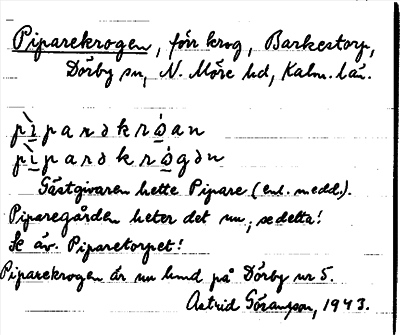 Piparekrogen, förr krog, Barkestorp,
Dörby sn, N. Möre hd, Kalm. län.
pìparəkrǿan
pìparəkrǿgən
Gästgivaren hette Pipare (enl. medd.).
Piparegården heter det nu; se detta!
Se äv. Piparetorpet!
Piparekrogen är nu hmd på Dörby nr 5.
Astrid Göransson, 1943.